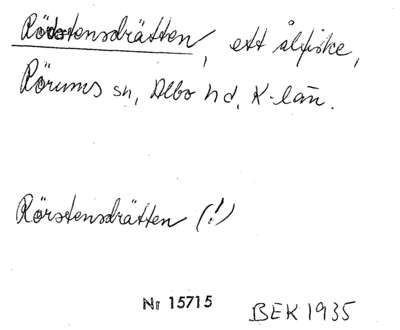 Rödstensdrätten, ett ålfiske,
Rörums sn, Albo hd, K-län.
Rörstensdrätten (!)
Nr 15715
BEK 1935